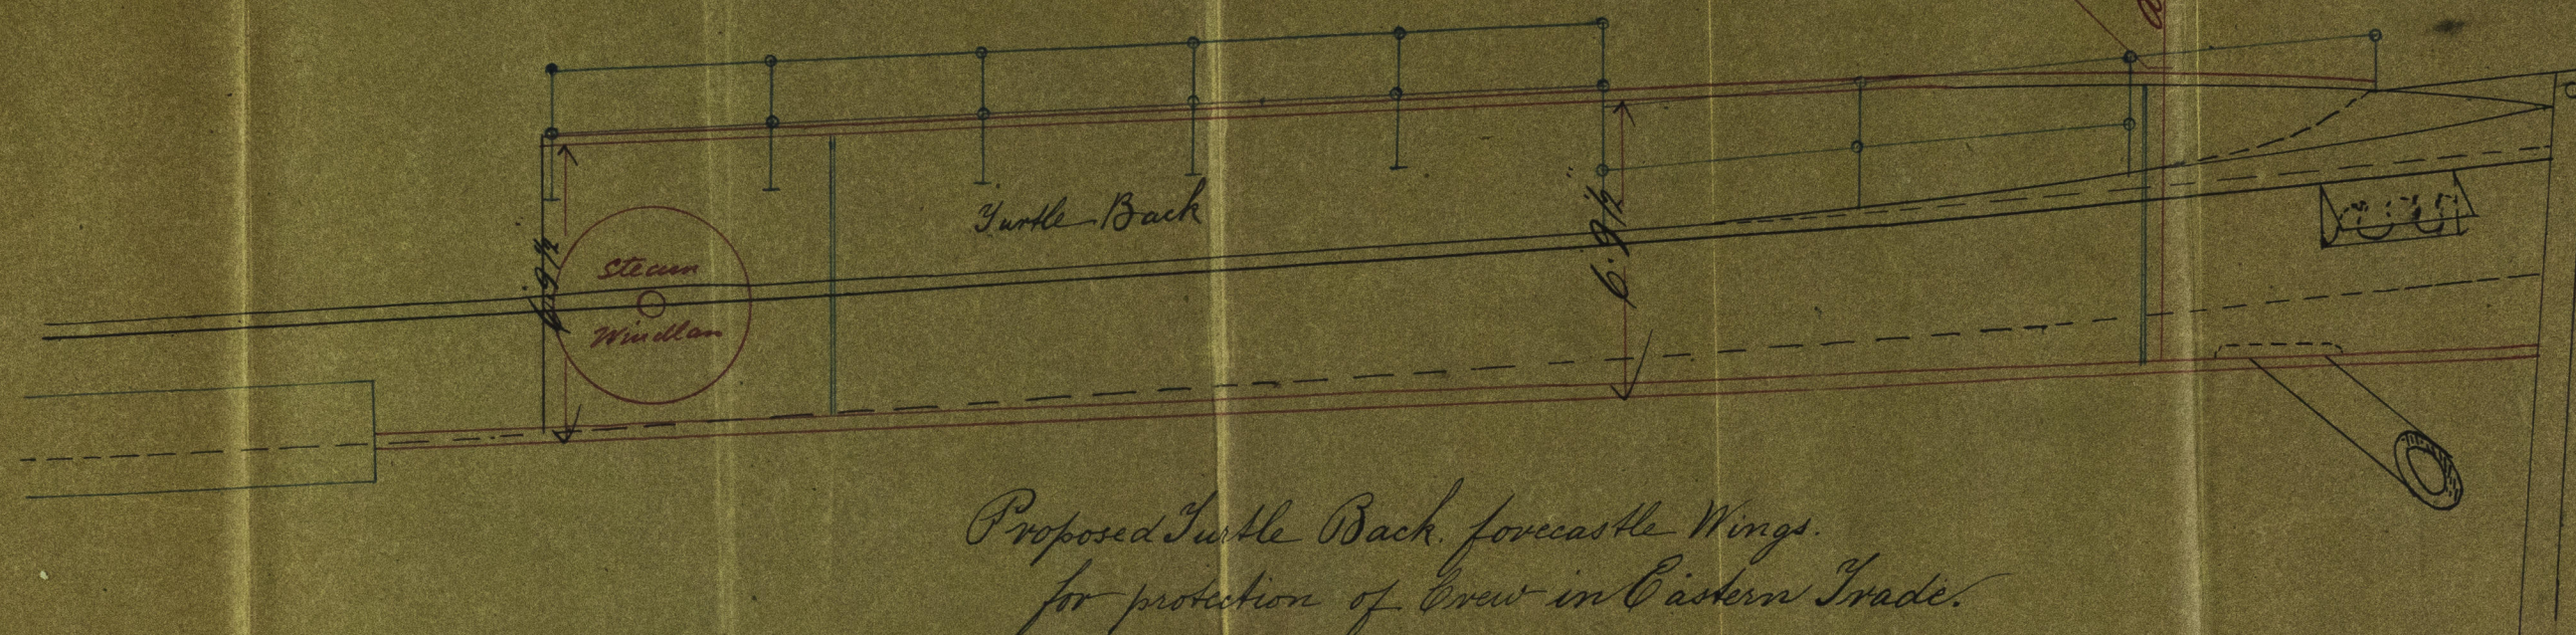 Turtle Back
6.9½"
6.9½"
Steam
Windlass
Proposed Turtle Back. forecastle Wings.
for protection of Crew in Eastern Trade.